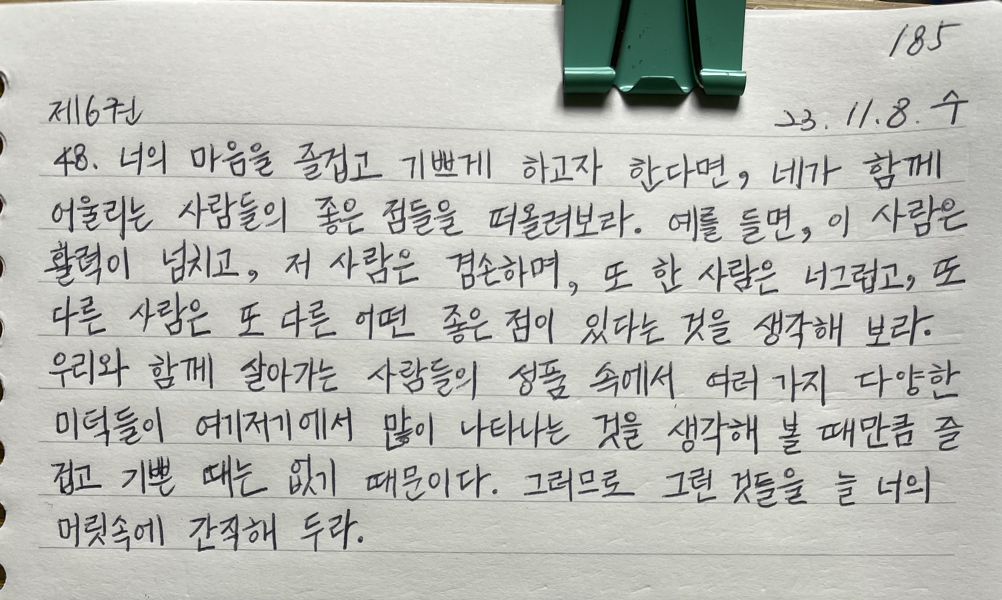 185
제6권 23. 11. 8. 수
48. 너의 마음을 즐겁고 기쁘게 하고자 한다면, 네가 함께
어울리는 사람들의 좋은 점들을 떠올려보라. 예를 들면, 이 사람은
활력이 넘치고, 저 사람은 겸손하며, 또 한 사람은 너그럽고, 또
다른 사람은 또 다른 어떤 좋은 점이 있다는 것을 생각해 보라.
우리와 함께 살아가는 사람들의 성품 속에서 여러 가지 다양한
미덕들이 여기저기에서 많이 나타나는 것을 생각해 볼 때만큼 즐
겁고 기쁜 때는 없기 때문이다. 그러므로 그런 것들을 늘 너의
머릿속에 간직해 두라.